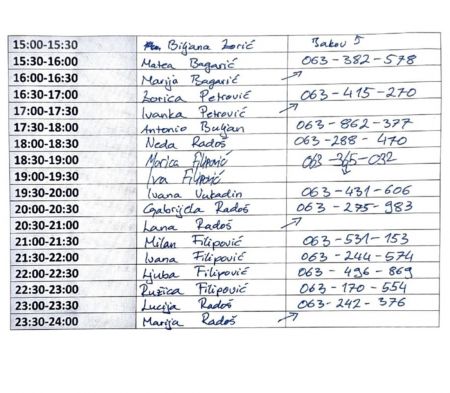 15:00-15:30 Biljana Zorić Bakov 5
15:30-16:00 Matea Bagarić 063-382-578
16:00-16:30 Marija Bagarić
16:30-17:00 Zorica Petrović 063-415-270
17:00-17:30 Ivanka Petrović
17:30-18:00 Antonio Buljan 063-862-377
18:00-18:30 Neda Radoš 063-288-470
18:30-19:00 Marica Filipović
19:00-19:30 Iva Filipović
19:30-20:00 Ivana Vukadin 063-431-606
20:00-20:30 Gabrijela Radoš 063-275-983
20:30-21:00 Lana Radoš
21:00-21:30 Milan Filipović 063-531-153
21:30-22:00 Ivana Filipović 063-244-574
22:00-22:30 Ljuba Filipović 063-496-869
22:30-23:00 Ružica Filipović 063-170-554
23:00-23:30 Lucija Radoš 063-242-376
23:30-24:00 Marija Radoš